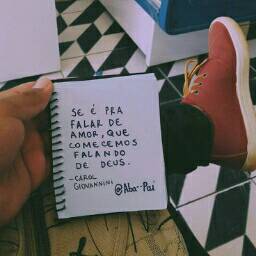 SE É PRA
FALAR DE
AMOR, QUE
COMECEMOS
FALANDO
DE DEUS.
-CAROL
GIOVANNINI
@Aba--Pai